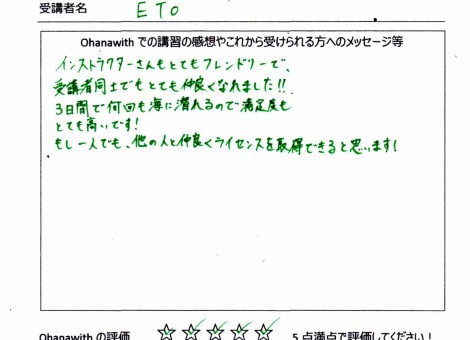 受講者名 ETO
Ohanawith での講習の感想やこれから受けられる方へのメッセージ等
インストラクターさんもとてもフレンドリーで、
受講者同士でもとても仲良くなれました!!
3日間で何回も海に潜れるので満足度も
とても高いです!
もし一人でも、他の人と仲良くライセンスを取得できると思います!
Ohanawith の評価 ☆☆☆☆☆ 5 点満点で評価してください!